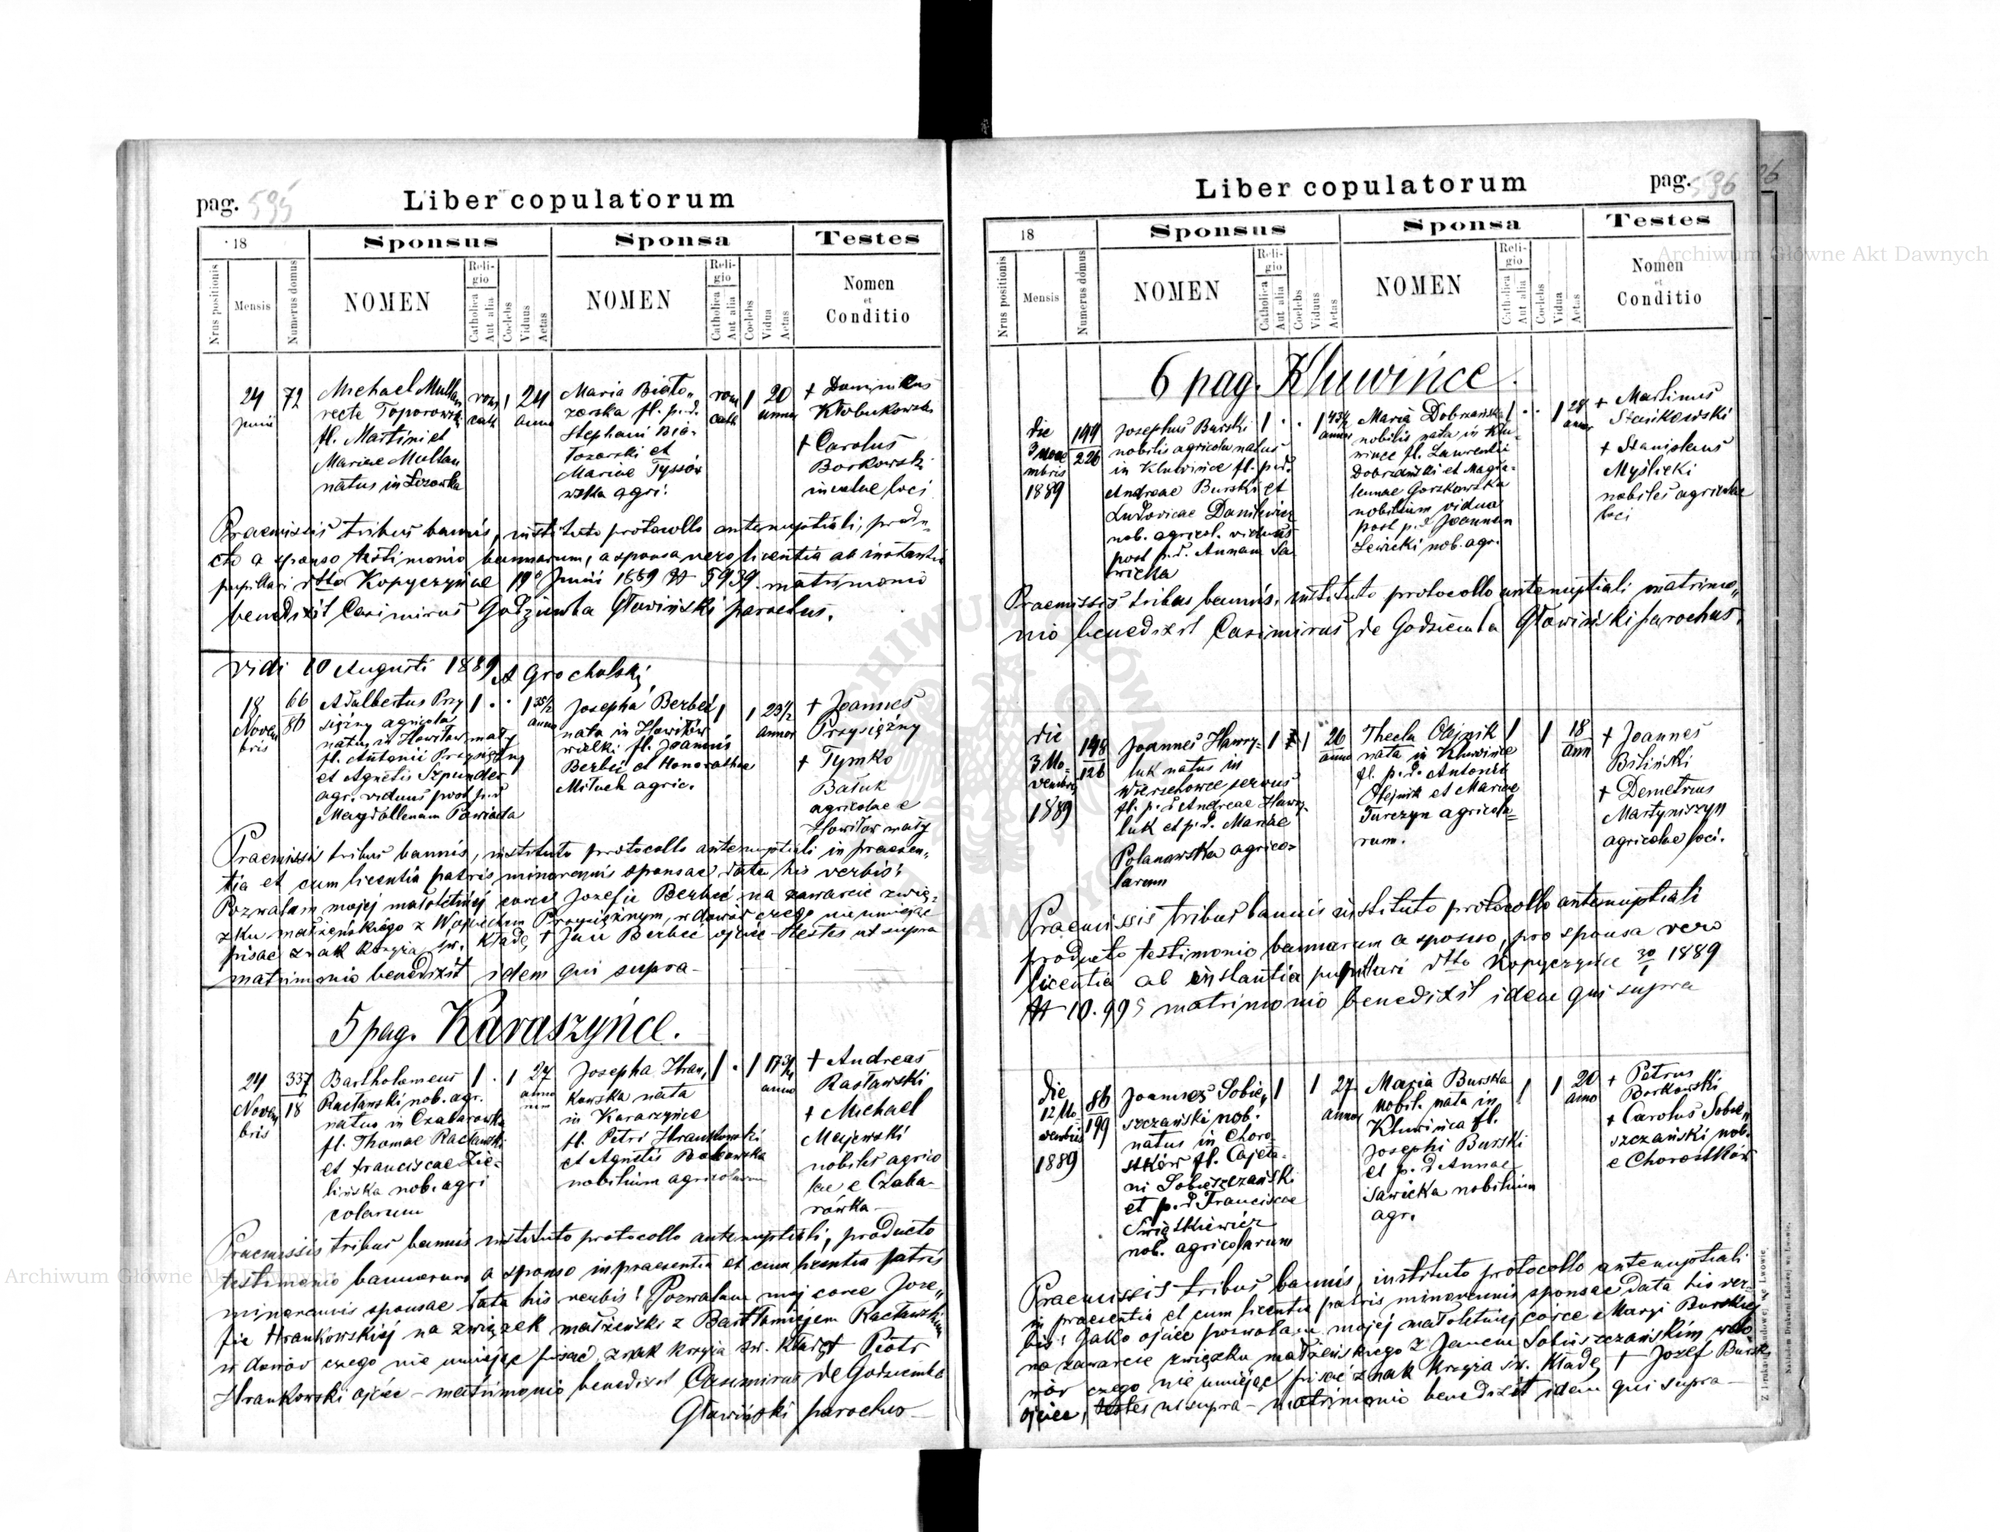 pag. 595
Liber copulatorum
18
Sponsus
Sponsa
Testes
Nrus positionis
Mensis
Numerus domus
NOMEN
Religio
Catholica
Aut alia
Coelebs
Viduus
Aetas
NOMEN
Religio
Catholica
Aut alia
Coelebs
Vidua
Aetas
Nomen
et
Conditio
24
Junii
72
Michael Mullan
recte Toporowski
fil. Martini et
Mariae Mullan
natus in Lezowka
rom
cath
1
24
anno
Maria Biało„
zorska fl. p.d.
Stephani Bia-
łozorski et
Mariae Tyssów
wska agri.
rom
cath
1
20
annor
+ Dominikus
Kłobukowski
+ Carolus
Borkowski
incolae loci
Praemissis tribus bannis, instituto protocollo antenuptiali, produ„
cto a sponso testimonio bannorum, a sponsa vero licentia ab instantia
pupillari dtto Kopyczyńce 19o Junii 1889 N 5939. matrimonio
benedixit Casimirus Godziemba Głowiński parochus.
Vidi 10 Augusti 1889 A Grocholski
18
Novem
bris
66
86
Adalbertus Przy
siężny agricola
natus in Howiłow mały
fl. Antonii Przysiężny
et Agnetis Szpunder
agr. viduus post p.d
Magdallenam Pawiata
1
1
35 1/2
anno
Josepha Berbeć
nata in Howiłów
wielki fl. Joannis
Berbeć et Honorathae
Miłuch agric.
1
1
23 1/2
annor
+ Joannes
Przysiężny
+ Tymko
Batuk
agricolae e
Howiłow mały
Praemissis tribus bannis, instituto protocollo antenuptiali in praesen„
tia et cum licentia patris minorennis sponsae data his verbis:
Pozwalam mojej małoletniej corce Jozefie Berbeć na zawarcie zwią„
zku małżeńskiego z Wojciechem Przysiężnym, w dowód czego nie umiejąc
pisać znak krzyża św. kładę + Jan Berbeć ojciec - testes ut supra
matrimonio benedixit idem qui supra -
5 pag. Karaszyńce.
24
Novem
bris
337
18
Bartholomeus
Racławski nob. agr.
natus in Czabarowka
fl. Thomae Racławski
et Franciscae Zie-
lińska nob. agri
colarum
1
1
27
anno
rum
Josepha Hran„
kowska nata
in Karaszyńce
fl. Petri Hrankowski
et Agnetis Bakowska
nobilium agricolarum
1
1
17 3/4
anno
+ Andreas
Racławski
+ Michael
Majewski
nobiles agrico
lae e Czaba-
rówka
Praemissis tribus bannis instituto protocollo antenuptiali, producto
testimonio bannorum a sponso in praesentia et cum licentia patris
minorennis sponsae data his verbis: Pozwalam mej corce Joze„
fie Hrankowskiej na związek małżeński z Bartłomiejem Racławskim
w dowód czego nie umiejąc pisać, znak krzyża św. kładę + Piotr
Hrankowski ojciec - matrimonio benedixit Casimirus de Godziemba
Głowiński parochus -
pag. 596
Liber copulatorum
18
Sponsus
Sponsa
Testes
Nrus positionis
Mensis
Numerus domus
NOMEN
Religio
Catholica
Aut alia
Coelebs
Viduus
Aetas
NOMEN
Religio
Catholica
Aut alia
Coelebs
Vidua
Aetas
Nomen
et
Conditio
6 pag. Kluwińce.
die
3 Nove
mbris
1889
194
226
Josephus Burski
nobilis agricola natus
in Kluwińce fl. p.d.
Andreae Burski et
Ludovicae Danilewicz
nob. agricol. viduus
post p.d. Annam Sa
wicka
1
1
43 1/2
annor
Maria Dobrzańska
nobilis nata in Klu-
wince fl. Laurentii
Dobrzański et Magda-
lennae Gorzkowska
nobilium vidua
post p.d Joannem
Lewicki nob. agr.
1
1
28
annor
+ Martinus
Stańkowski
+ Stanislaus
Myślicki
nobiles agricolae
loci
Praemissis tribus bannis, instituto protocollo antenuptiali matrimo„
nio benedixit Casimirus de Godziemba Głowiński parochus.
die
3 No-
vembris
1889
148
126
Joannes Hawry-
luk natus in
Wierzchowce servus
fl. p.d Andreae Hawry
luk et p.d. Mariae
Polanowska agrico-
larum
1
1
26
anno
Thecla Olejnik
nata in Kluwińce
fl. p.d. Antonii
Olejnik et Mariae
Turczyn agricola=
rum.
1
1
18
ann
+ Joannes
Biliński
+ Demetrius
Martyniszyn
agricolae loci.
Praemissis tribus bannis instituto protocollo antenuptiali
producto testimonio bannorum a sponso, pro sponsa vero
licentia ab instantia pupillari dtto Kopyczyńce 30/1 1889
N 10.995 matrimonio benedixit idem qui supra
die
12 No
vembris
1889
86
199
Joannes Sobie„
szczański nob.
natus in Choro-
stków fl. Cajeta-
ni Sobieszczański
et p.d Franciscae
Świątkiewicz
nob. agricolarum
1
1
27
annor
Maria Burska
nobil. nata in
Kluwińce fl.
Josephi Burski
et p.d Annae
Sawicka nobilium
agr.
1
1
20
anno
+ Petrus
Borkowski
+ Carolus Sobie„
szczański nob.
e Chorostków
Praemissis tribus bannis, instituto protocollo antenuptiali
in praesentia et cum licentia patris minorennis sponsae data his ver„
bis: Jako ojciec pozwalam mojej małoletniej córce Maryi Burskiej
na zawarcie związku małżeńskiego z Janem Sobieszczańskim, w do
wód czego nie umiejąc pisać znak krzyża św. kładę + Jozef Burski
ojciec, testes ut supra - matrimonio benedixit idem qui supra -
Nakładem Drukarni Ludowej we Lwowie.
Archiwum Główne Akt Dawnych
Archiwum Główne Akt Dawnych
ARCHIWUM GŁÓWNE AKT DAWNYCH